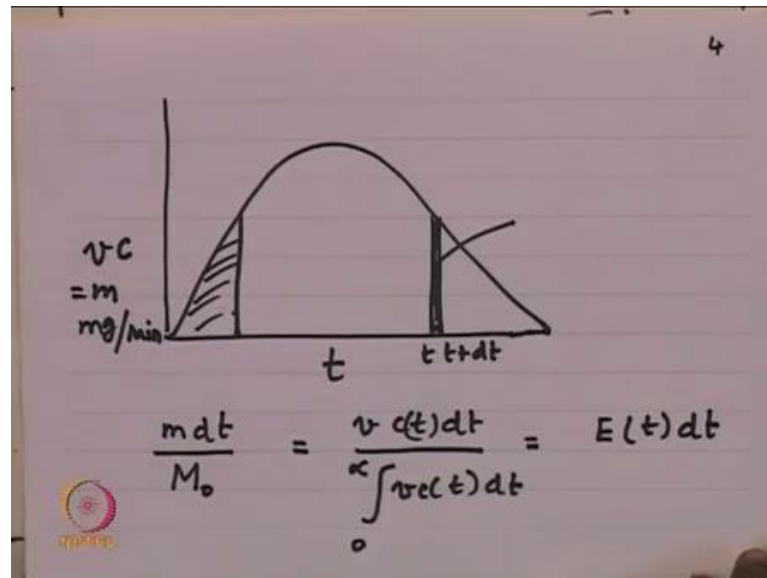 4
v c
= m
mg/min
t
t t+dt
m dt / M₀ = v c(t) dt / ∫₀^∝ v c(t) dt = E(t) dt